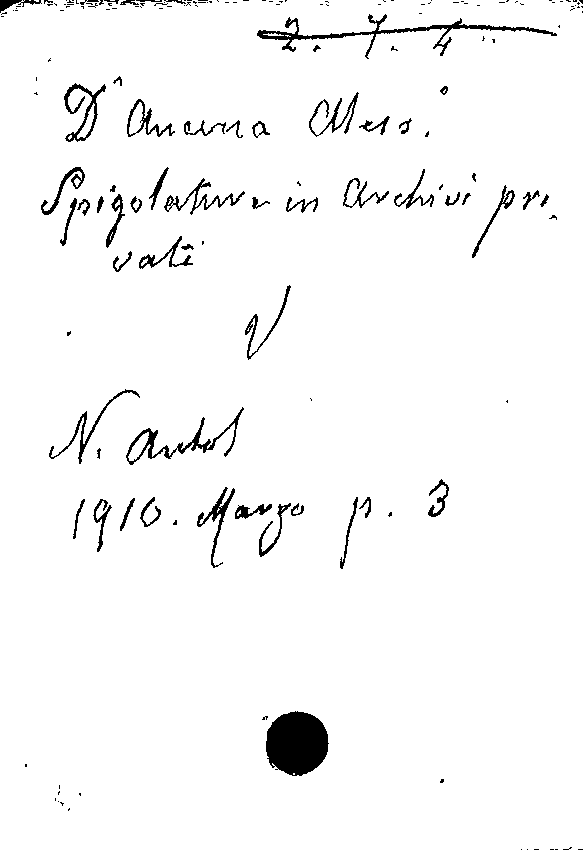 2. 7. 4
D'Ancona Aless.°
Spigolature in Archivi pri-
vati
V
N. Antol
1910. Marzo p. 3